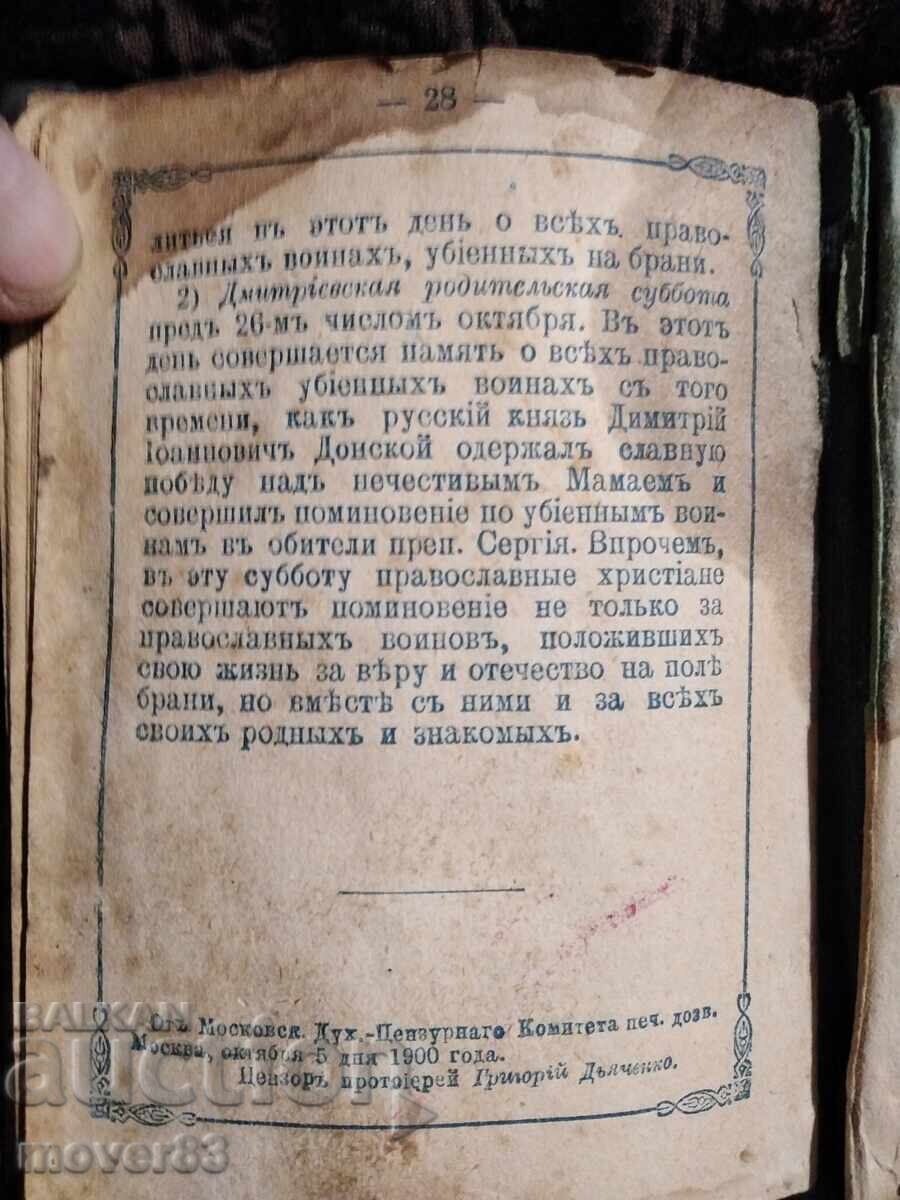 — 28 —
литься въ этотъ день о всѣхъ право-
славныхъ воинахъ, убіенныхъ на брани.
2) Дмитріевская родительская суббота
предъ 26-мъ числомъ октября. Въ этотъ
день совершается память о всѣхъ право-
славныхъ убіенныхъ воинахъ съ того
времени, какъ русскій князь Димитрій
Іоанновичъ Донской одержалъ славную
побѣду надъ нечестивымъ Мамаемъ и
совершилъ поминовеніе по убіеннымъ вои-
намъ въ обители преп. Сергія. Впрочемъ,
въ эту субботу православные христіане
совершаютъ поминовеніе не только за
православныхъ воиновъ, положившихъ
свою жизнь за вѣру и отечество на полѣ
брани, но вмѣстѣ съ ними и за всѣхъ
своихъ родныхъ и знакомыхъ.
Отъ Московск. Дух.-Цензурнаго Комитета печ. дозв.
Москва, октября 5 дня 1900 года.
Цензоръ протоіерей Григорій Дьяченко.
BALKAN
auction
mover83